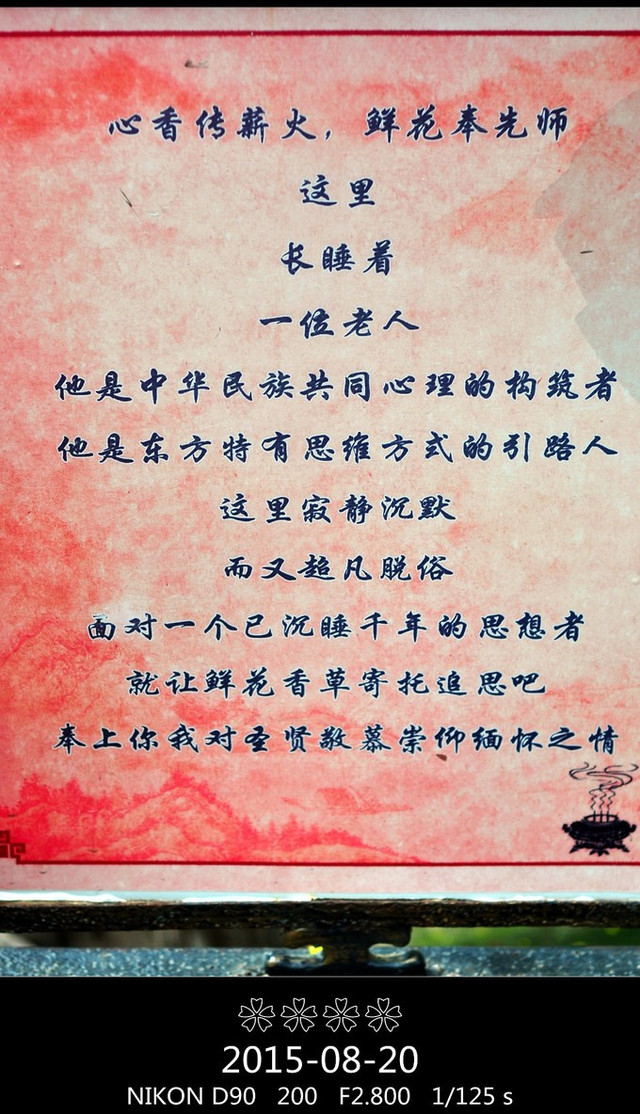 心香传薪火，鲜花奉先师
这里
长睡着
一位老人
他是中华民族共同心理的构筑者
他是东方特有思维方式的引路人
这里寂静沉默
而又超凡脱俗
面对一个已沉睡千年的思想者
就让鲜花香草寄托追思吧
奉上你我对圣贤敬慕崇仰缅怀之情
2015-08-20
NIKON D90 200 F2.800 1/125 s